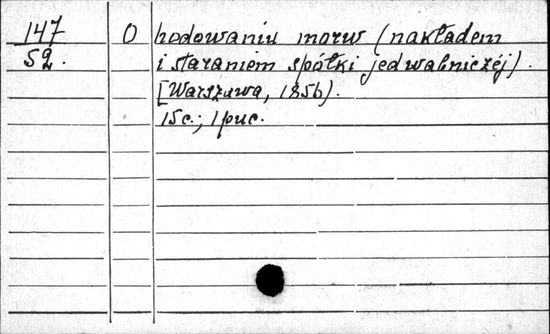 147 О hodowaniu morw (nakładem
52. i staraniem spółki jedwabniczéj).
[Warszawa, 1856).
15с.; 1 рис.